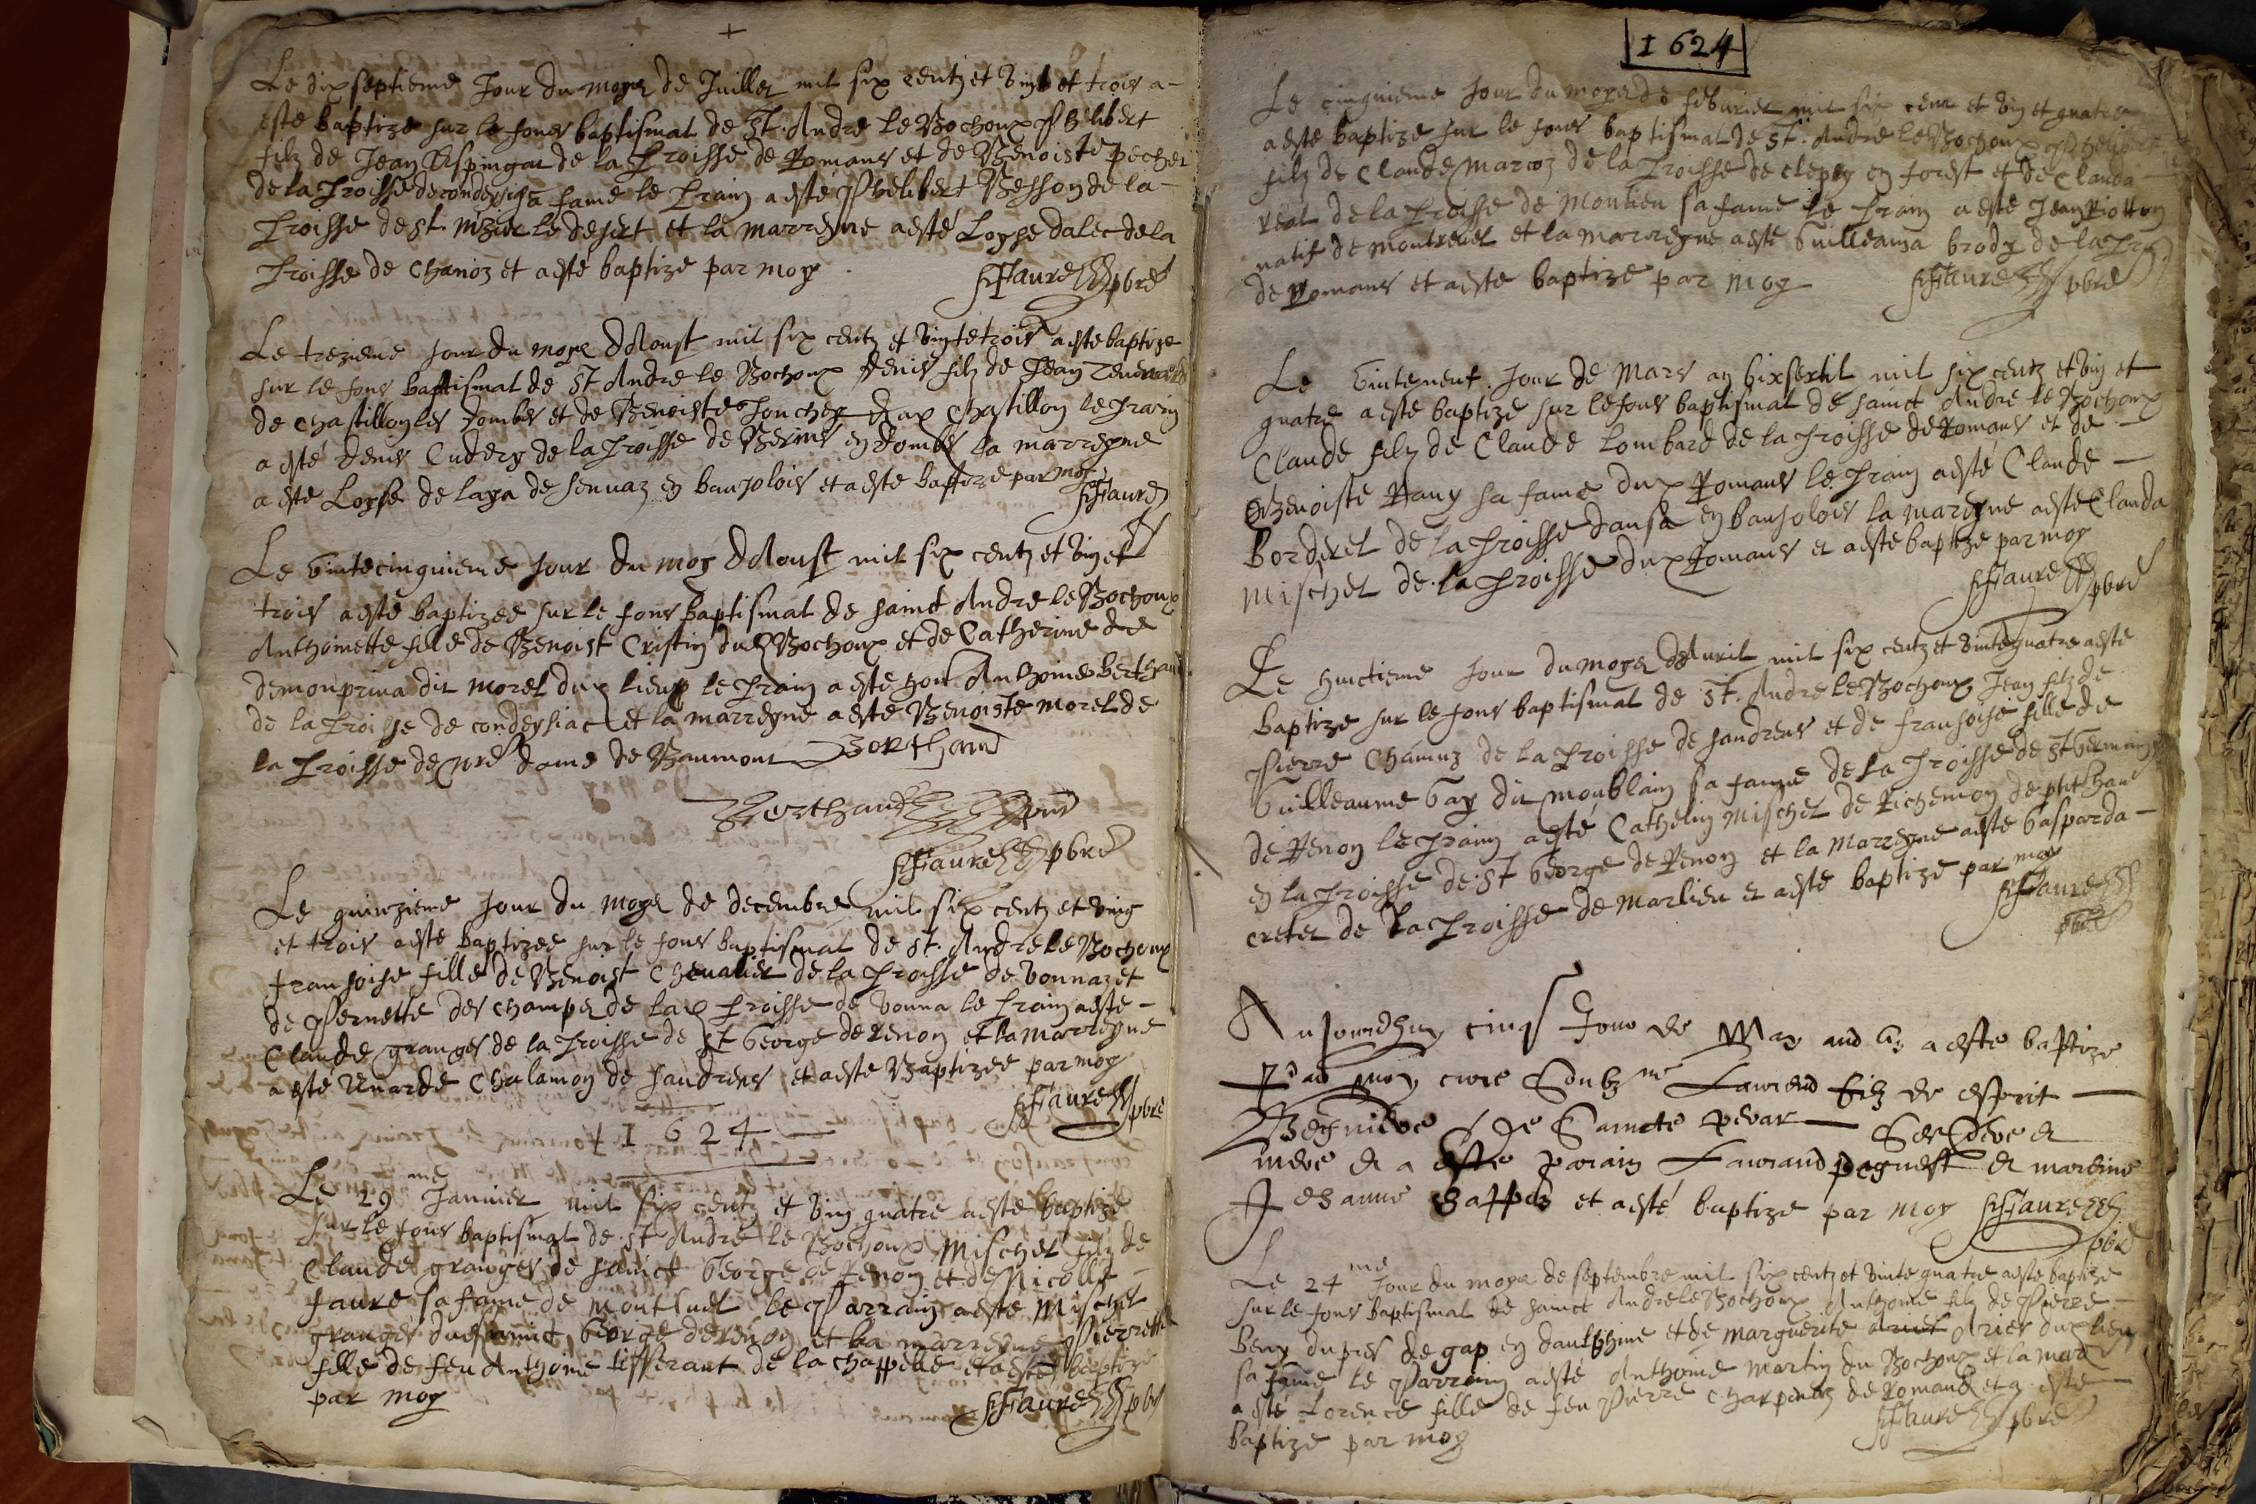 Le dix septieme Jour du moys de Juillet mil six centz et vingt et trois a
este baptize sur le fons baptismal de St. Andre le Bochoux Phelibert
filz de Jean Espingat de la Proisse de Romans et de Benoiste Pechet
de la Proisse de condeysia sa fame le Prain a esté Phelibert Besson de la
Proisse de St. nizier le desert et la marreyne a esté Loyse dalec de la
Proisse de Chanoz et a esté baptize par moy
Faure pbre
Le trezieme Jour du moys dAoust mil six centz et vingtetrois a este baptize
sur le fons baptismal de St Andre le Bochoux Denis filz de Jean
de Chastillon les Dombes et de Benoiste Jonchey dax Chastillon le Prain
a esté Denis Cudery de la Proisse de Berins en Dombes la marreyne
a este Loyse de Laya de Jenuaz en baujolois et a este baptize par moy
Faure
Le vintecinquieme Jour du moy dAoust mil six centz et vinget
trois a esté baptizee sur le fons baptismal de sainct Andre le Bochoux
Anthoinette fille de Benoist Cristin dud Bochoux et de Catherine de
demonprina dit Morel dux lieux le Prain a este hon. Anthoine berthaud
de la Proisse de condeysiac et la marreyne a esté Benoiste Morel de
la Proisse de nre dame de Baumont Berthaud
Berthaud
Faure pbre
Le quinzieme Jour du Moys de decembre mil six centz et ving
et trois a esté baptizee sur le fons baptismal de St. Andre le Bochoux
françoise fille de Benoist Chevalier de la Proisse de vonnaz et
de Pernette des champs de lax Proisse de vonna le Prain a este
Claude granges de la Proisse de St George de renon et la marreyne
a esté Chalamon de Sandrens et a este Baptizee par moy
Faure pbre
1624
Le 29 me Januier mil six centz et vin quatre a esté baptize
sur le fons baptismal de St Andre le Bochoux Mischel filz de
Claude granges de sainct George de Renon et de Nicolle
faure sa fame de Montluel le Parrain a esté Mischel
granges dud sainct George de renon et la marreyne Pierrette
fille de feu Anthoine tisserant de la chappelle et a esté baptize
par moy
Faure pbr
1624
Le cinquieme Jour du moys de feburier mil six cent et vin et quatre
a este baptize sur le fons baptismal de St. Andre le Bochoux Phelibert
filz de Claude Marcoz de la Proisse de clepey en forest et de Clauda
real de la Proisse de Monlieu sa fame le Prain a este Jean Riotton
natif de Montreuel et la marreyne a esté Guilleama brody de la Pro
de Romans et a esté baptize par moy
Faure pbre
Le vinteneuf Jour de Mars an bixsextil mil six centz et vin et
quatre a este baptize sur le fons baptismal de sainct Andre le Bochoux
Claude filz de Claude Lombard de la Proisse de Romans et de
Benoiste Rauy sa fame dux Romans le Prain a esté Claude
Borderel de la Proisse dansa en baujolois la mareyne a este Clauda
Mischel de la Proisse dux Romans et a este baptize par moy
Faure pbre
Le huictieme Jour du moys dAuril mil six centz et vintequatre a este
baptize sur le fons baptismal de St. Andre le Bochoux Jean filz de
Pierre Chamuz de la Proisse de Sandrens et de françoise fille de
Guilleaume Gay dit moublain sa fame de la Proisse de St Germain
de Renon le Prain a esté Cathelin Mischel de Richemon de ptit
en la Proisse de St George de Renon et la Marreyne a esté Gasparda
cretet de la Proisse de Marlieu et a esté baptize par moy
Faure
pbre
Aujourdhuy cinqs Jour de May and a este baptize
par moy cure Soubzne Laurend filz de esprit
de Saincte Ses pere et
mere et a Este parain Laurand pegnest et mareine
Jesanne Sappes et a esté baptize par moy Faure
pbre
Le 24 me Jour du moys de septembre mil six centz et vinte quatre a esté baptize
sur le fons baptismal de sainct Andre le Bochoux Anthoine filz de Pierre
Beuy du pres de gap en daulphine et de Marguerite Aries dux lieu
sa fame le Parrain a esté Anthoine Martin du Bochoux et la mar
a esté Lorence fille de feu Pierre Charpinaz de Romans et a este
baptize par moy
Faure pbre